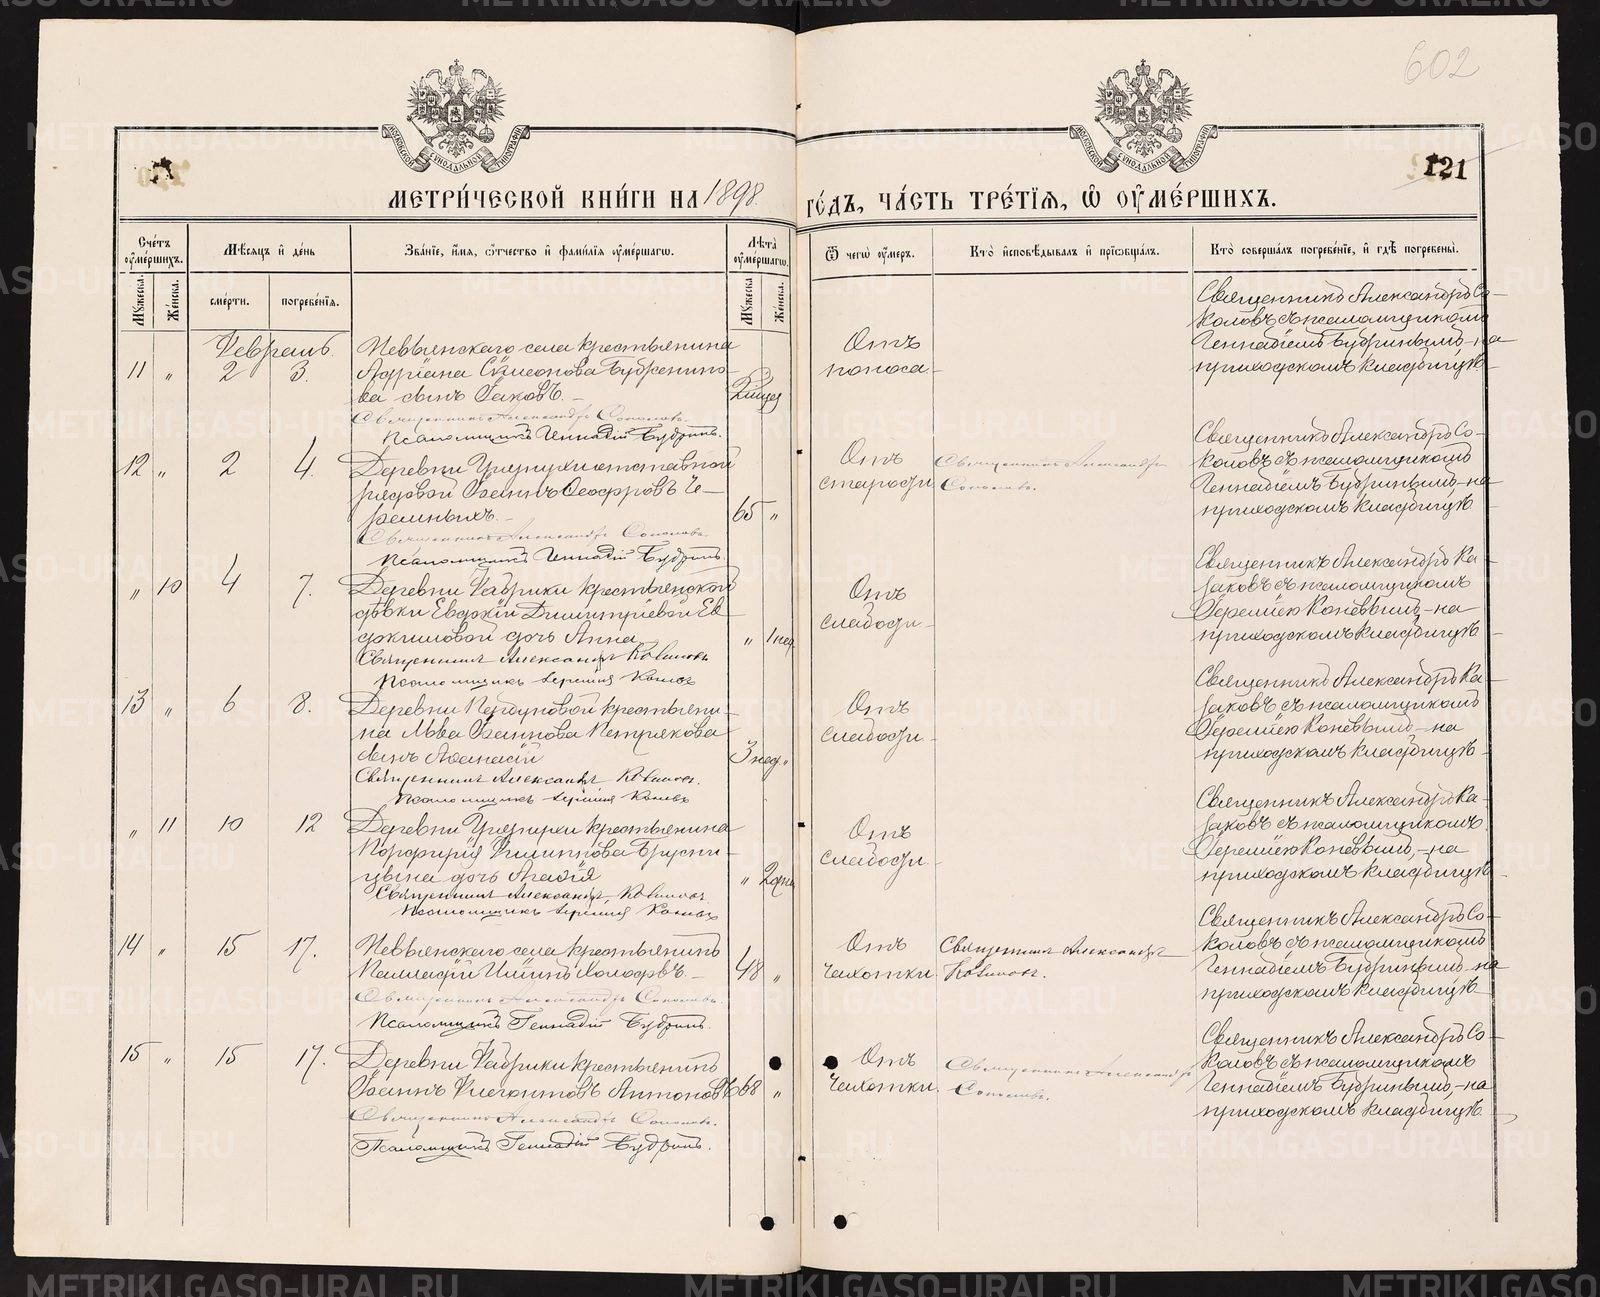 602
121
МЕТРИ́ЧЕСКОЙ КНИ́ГИ НА 1898 ГО́ДЪ, ЧА́СТЬ ТРЕ́ТІЯ, Ѿ ОУ҆МЕ́РШИХЪ.
Счётъ оумершихъ.
Мѣсяцъ и день
Званіе, имя, отчество и фамилія оумершагѡ.
Лѣта оумершагѡ.
Ѿ чегѡ оумеръ.
Кто исповѣдывалъ и пріобщалъ.
Кто совершалъ погребеніе, и гдѣ погребены.
Мужеска.
Женска.
смерти.
погребенія.
Мужеска.
Женска.
Февраль.
11 " 2 3.
Невьянскаго села крестьянина
Адріана Сѵмеонова
сынъ Іаковъ.
Священникъ Александръ Соколовъ.
Псаломщикъ Геннадій Будринъ.
Отъ
поноса
Священникъ Александръ Со-
коловъ съ псаломщикомъ
Геннадіемъ Будринымъ, на
приходскомъ кладбищѣ
12 " 2 4.
отставной
рядовой Іоаннъ Че-
ремныхъ.
65 "
Священникъ Александръ Соколовъ.
Псаломщикъ Геннадій Будринъ.
Отъ
старости
Священникъ Александръ
Соколовъ.
Священникъ Александръ Со-
коловъ съ псаломщикомъ
Геннадіемъ Будринымъ, на
приходскомъ кладбищѣ
" 10 4 7.
Деревни Фабрики крестьянской
дѣвки Евдокіи Димитріевой Ев
докимовой дочь Анна
" 1 нед.
Священникъ Александръ
Псаломщикъ
Отъ
слабости
Священникъ Александръ Ка-
заковъ съ псаломщикомъ
Іереміею Коневымъ, на
приходскомъ кладбищѣ
13 " 6 8.
Деревни крестьяни-
на Льва Іоаннова Петрякова
сынъ Аѳанасій
3 нед. "
Священникъ Александръ
Псаломщикъ
Отъ
слабости
Священникъ Александръ Ка-
заковъ съ псаломщикомъ
Іереміею Коневымъ, на
приходскомъ кладбищѣ
" 11 10 12
Деревни крестьянина
Порфирія Филиппова Брусни-
цына дочь Агаѳія
" 2 дни
Священникъ Александръ
Псаломщикъ
Отъ
слабости
Священникъ Александръ Ка-
заковъ съ псаломщикомъ
Іереміею Коневымъ, на
приходскомъ кладбищѣ
14 " 15 17.
Невьянскаго села крестьянинъ
Палладій Ильинъ
48 "
Священникъ Александръ Соколовъ.
Псаломщикъ Геннадій Будринъ.
Отъ
чахотки
Священникъ Александръ
Священникъ Александръ Со-
коловъ съ псаломщикомъ
Геннадіемъ Будринымъ, на
приходскомъ кладбищѣ
15 " 15 17.
Деревни Фабрики крестьянинъ
Іоаннъ Антоновъ 68 "
Священникъ Александръ Соколовъ.
Псаломщикъ Геннадій Будринъ.
Отъ
чахотки
Священникъ Александръ
Соколовъ.
Священникъ Александръ Со-
коловъ съ псаломщикомъ
Геннадіемъ Будринымъ, на
приходскомъ кладбищѣ
METRIKI.GASO-URAL.RU